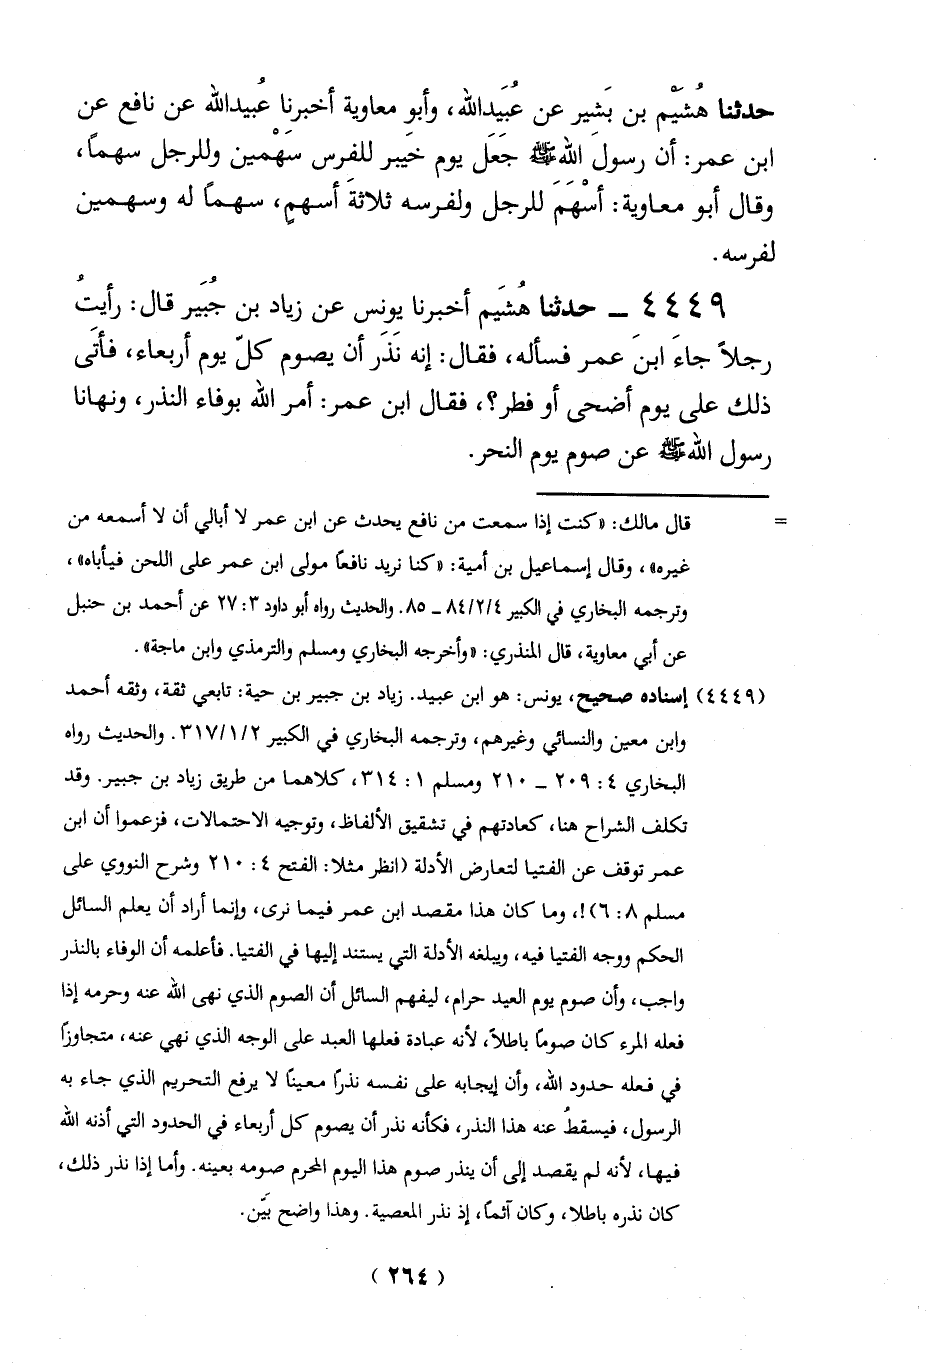 حدثنا هُشَيْم بن بَشير عن عُبَيدالله، وأبو معاوية أخبرنا عُبيدالله عن نافع عن
ابن عمر: أن رسول اللهﷺ جَعَل يوم خَيبر للفرس سَهْمين وللرجل سهماً،
وقال أبو معاوية: أسْهَمَ للرجل ولفرسه ثلاثةَ أسهمٍ، سهماً له وسهمين
لفرسه.
٤٤٤٩ ــ حدثنا هُشَيم أخبرنا يونس عن زياد بن جُبير قال: رأيتُ
رجلاً جاءَ ابنَ عمر فسأله، فقال: إنه نَذَر أن يصوم كلّ يوم أربعاء، فأتَى
ذلك على يوم أضحى أو فطر؟، فقال ابن عمر: أمر الله بوفاء النذر، ونهانا
رسول اللهﷺ عن صوم يوم النحر.
= قال مالك: «كنت إذا سمعت من نافع يحدث عن ابن عمر لا أبالي أن لا أسمعه من
غيره»، وقال إسماعيل بن أمية: «كنا نريد نافعاً مولى ابن عمر على اللحن فيأباه»،
وترجمه البخاري في الكبير ٨٤/٢/٤ ــ ٨٥. والحديث رواه أبو داود ٣: ٢٧ عن أحمد بن حنبل
عن أبي معاوية، قال المنذري: «وأخرجه البخاري ومسلم والترمذي وابن ماجة».
(٤٤٤٩) إسناده صحيح، يونس: هو ابن عبيد. زياد بن جبير بن حية: تابعي ثقة، وثقه أحمد
وابن معين والنسائي وغيرهم، وترجمه البخاري في الكبير ٣١٧/١/٢. والحديث رواه
البخاري ٤: ٢٠٩ ــ ٢١٠ ومسلم ١: ٣١٤، كلاهما من طريق زياد بن جبير. وقد
تكلف الشراح هنا، كعادتهم في تشقيق الألفاظ، وتوجيه الاحتمالات، فزعموا أن ابن
عمر توقف عن الفتيا لتعارض الأدلة (انظر مثلا: الفتح ٤: ٢١٠ وشرح النووي على
مسلم ٨: ٦)!، وما كان هذا مقصد ابن عمر فيما نرى، وإنما أراد أن يعلم السائل
الحكم ووجه الفتيا فيه، ويبلغه الأدلة التي يستند إليها في الفتيا. فأعلمه أن الوفاء بالنذر
واجب، وأن صوم يوم العيد حرام، ليفهم السائل أن الصوم الذي نهى الله عنه وحرمه إذا
فعله المرء كان صوماً باطلاً، لأنه عبادة فعلها العبد على الوجه الذي نهي عنه، متجاوزاً
في فعله حدود الله، وأن إيجابه على نفسه نذراً معيناً لا يرفع التحريم الذي جاء به
الرسول، فيسقطُ عنه هذا النذر، فكأنه نذر أن يصوم كل أربعاء في الحدود التي أذنه الله
فيها، لأنه لم يقصد إلى أن ينذر صوم هذا اليوم المحرم صومه بعينه. وأما إذا نذر ذلك،
كان نذره باطلا، وكان آثماً، إذ نذر المعصية. وهذا واضح بَيِّن.
(٢٦٤)